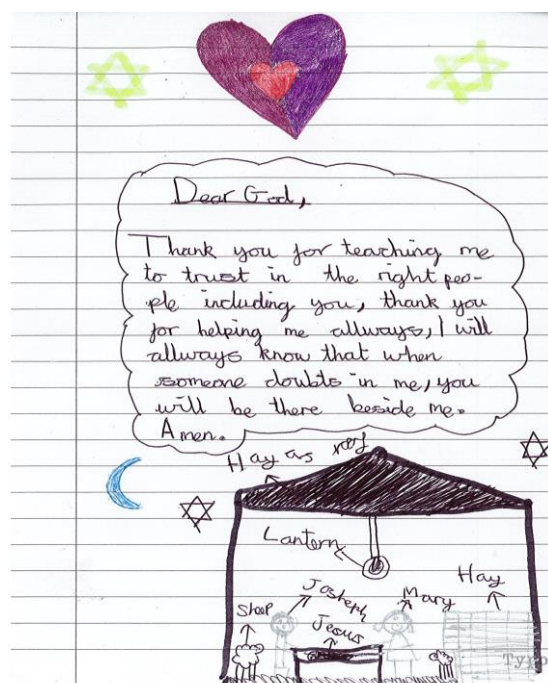 Dear God,
Thank you for teaching me
to trust in the right peo-
ple including you, thank you
for helping me allways, I will
allways know that when
someone doubts in me, you
will be there beside me.
Amen.
Hay as roof
Lantern
Hay
Josheph
Mary
Sheep
Jesus